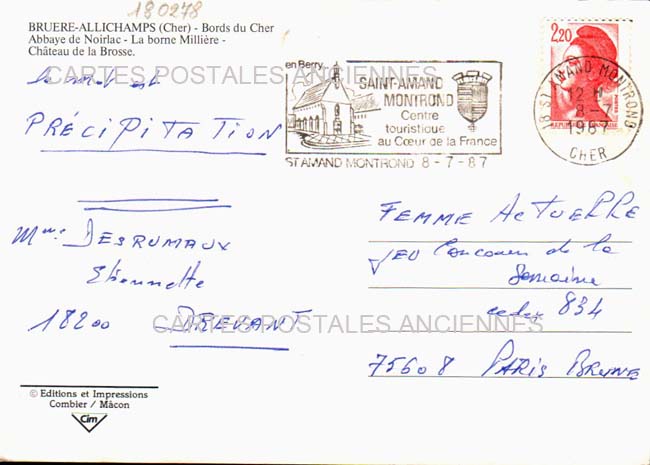 180278
BRUERE-ALLICHAMPS (Cher) - Bords du Cher
Abbaye de Noirlac - La borne Millière -
Château de la Brosse.
le mot est
PRÉCIPITATION
Mme DESRUMAUX
Etiennette
18200 DREVANT
© Editions et Impressions
Combier / Mâcon
Cim
en Berry
SAINT-AMAND
MONTROND
Centre
touristique
au Cœur de la France
ST AMAND MONTROND 8-7-87
2,20
18 ST AMAND MONTROND
12 H
8-7
1987
CHER
FEMME ACTUELLE
JEU Concours de la
Semaine
cedex 834
75608 PARIS BRUNE
CARTES POSTALES ANCIENNES
CARTES POSTALES ANCIENNES